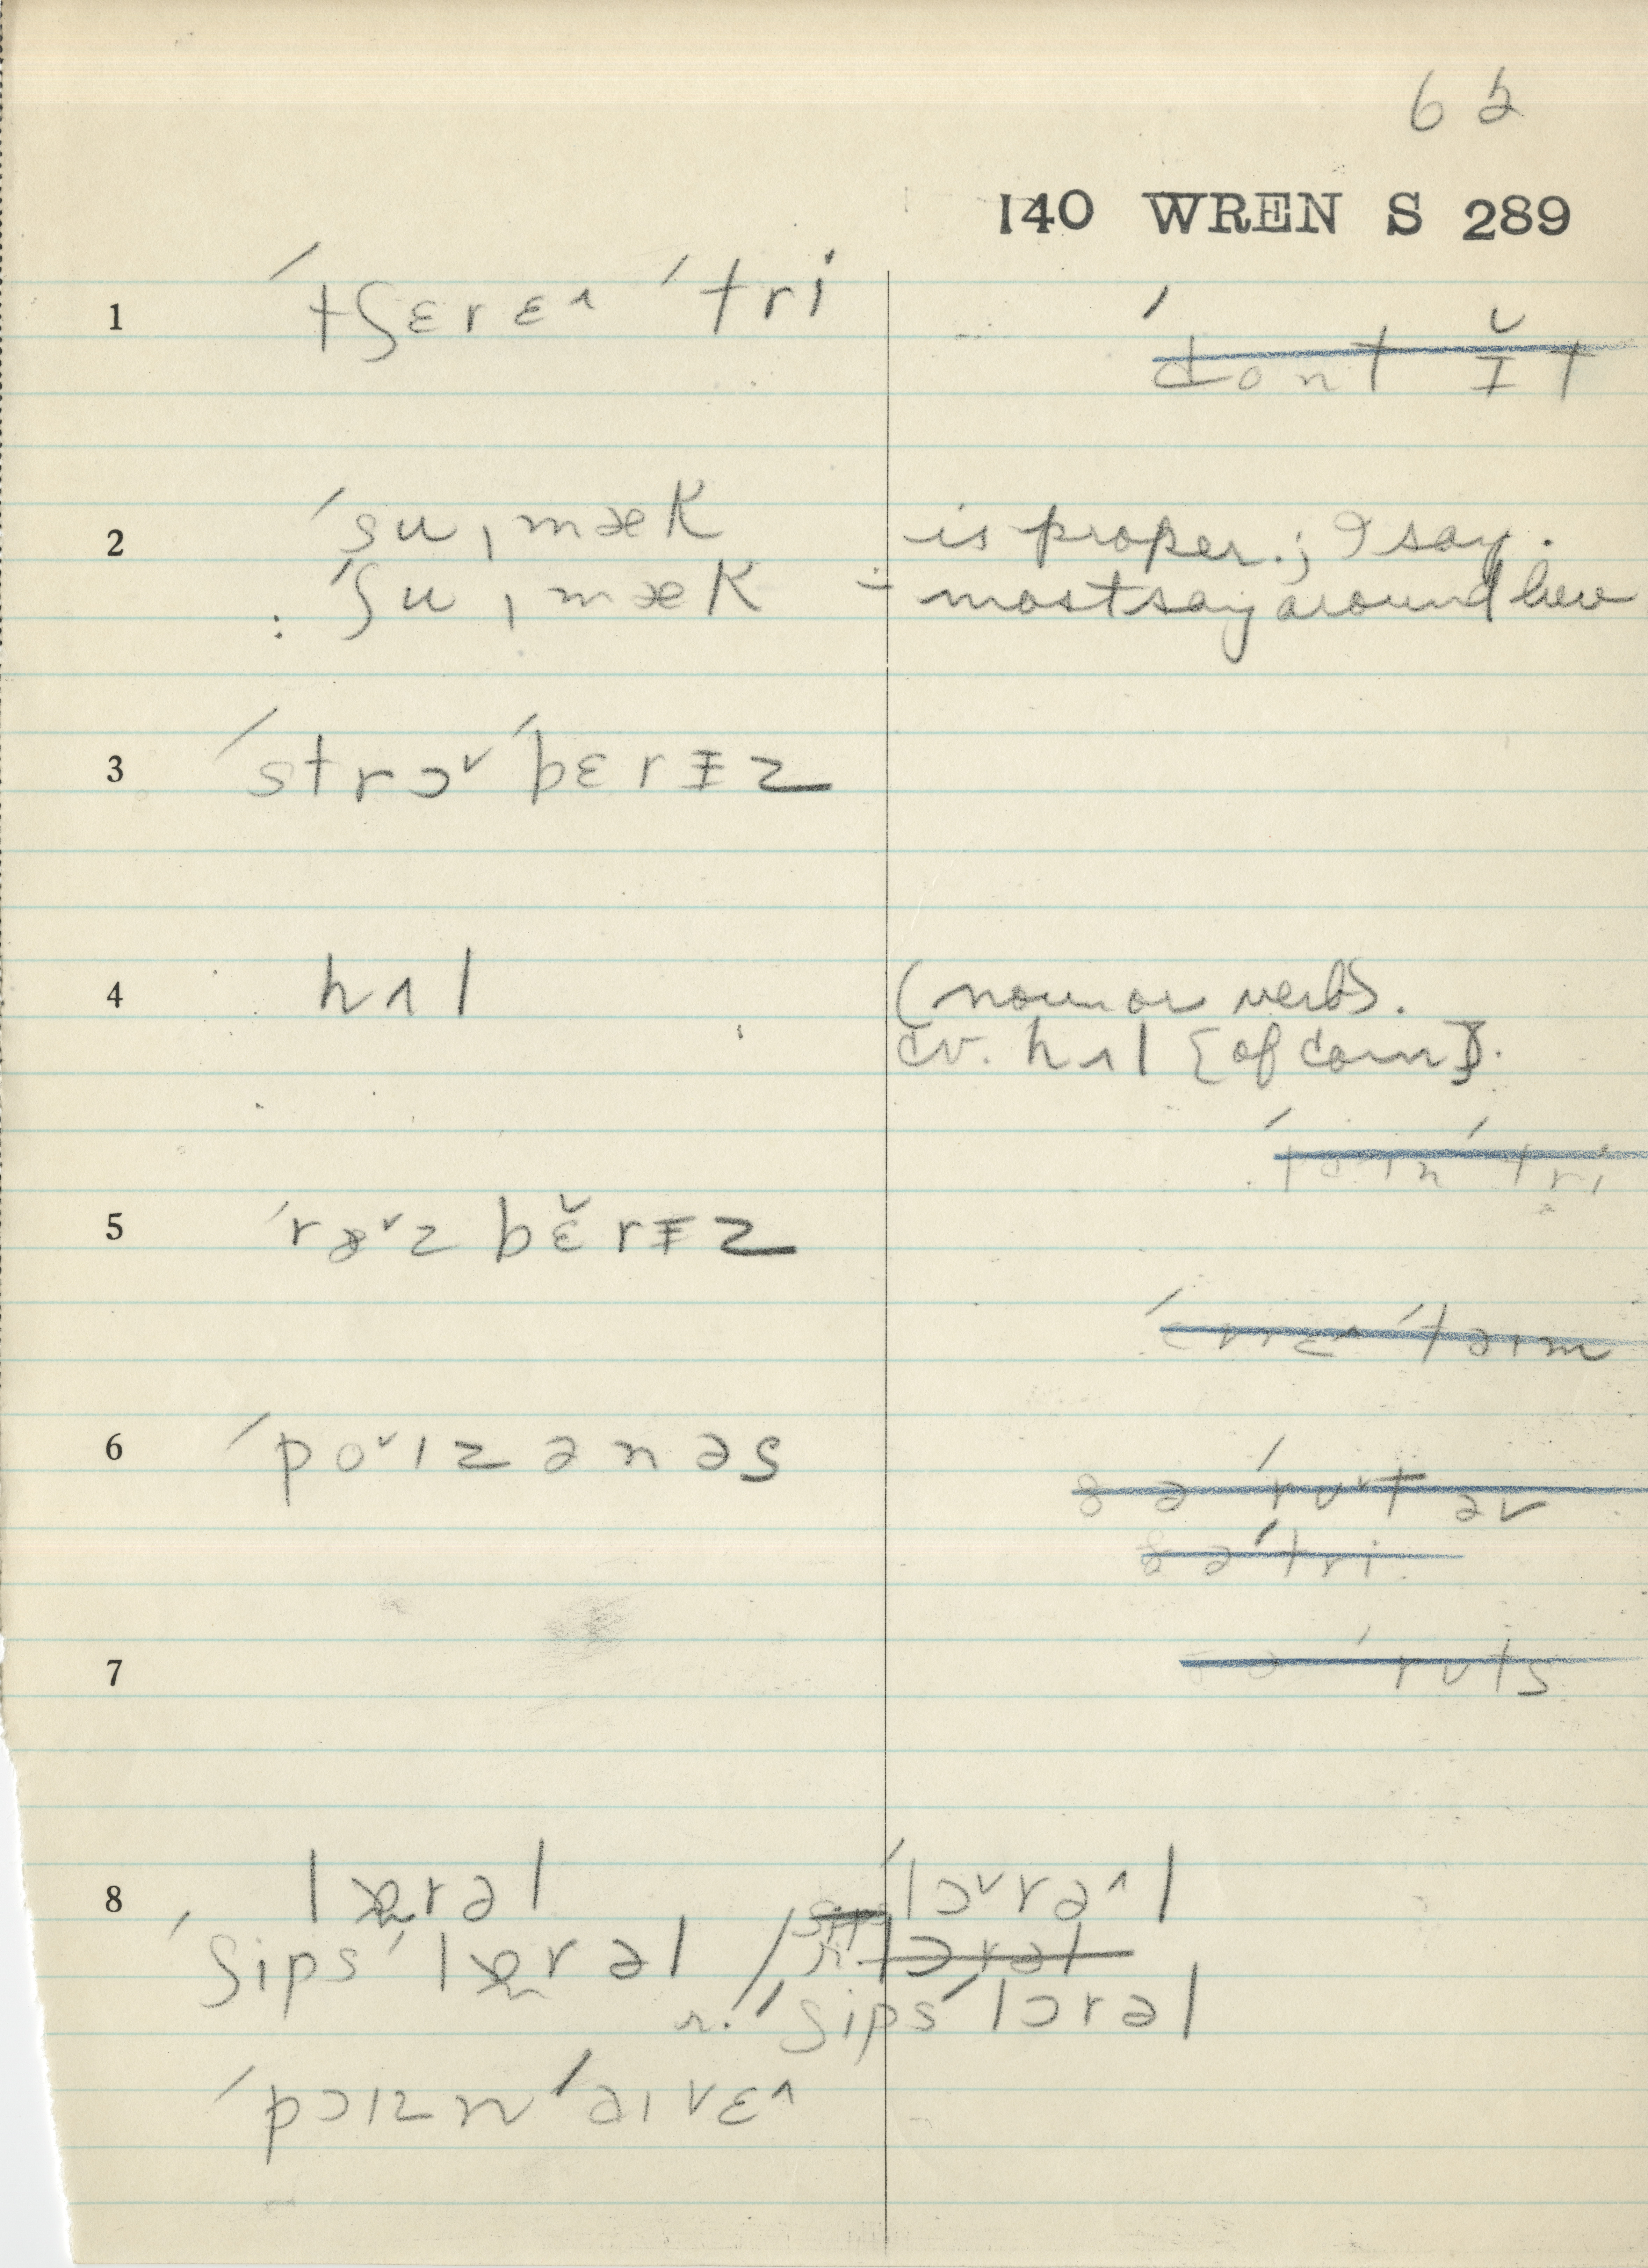 62
140 WREN S 289
1 ˈtʃɛrɛ^ ˈtri
ˈdont ɪ̆t
2 ˈsuˌmæk - is proper.; I say.
: ˈʃuˌmæk ÷ most say around here
3 ˈstrɔˇˈbɛrɪz
4 hʌl (noun or verb).
cv. hʌl [of corn].
ˈtri
5 ˈræˇz bɛ̆rɪz
ˈtəɪm
6 ˈpoˇɪzənəs
ðə ˈruˇt əv
ðə ˈtri
7 ˈruts
8 lɒrəl ˈlɔˇrə^l
ˈʃips ˈlɒrəl / lɔrəl
r. ˈʃips ˈlɔrəl
ˈpɔɪzn ˈaɪvɛ^